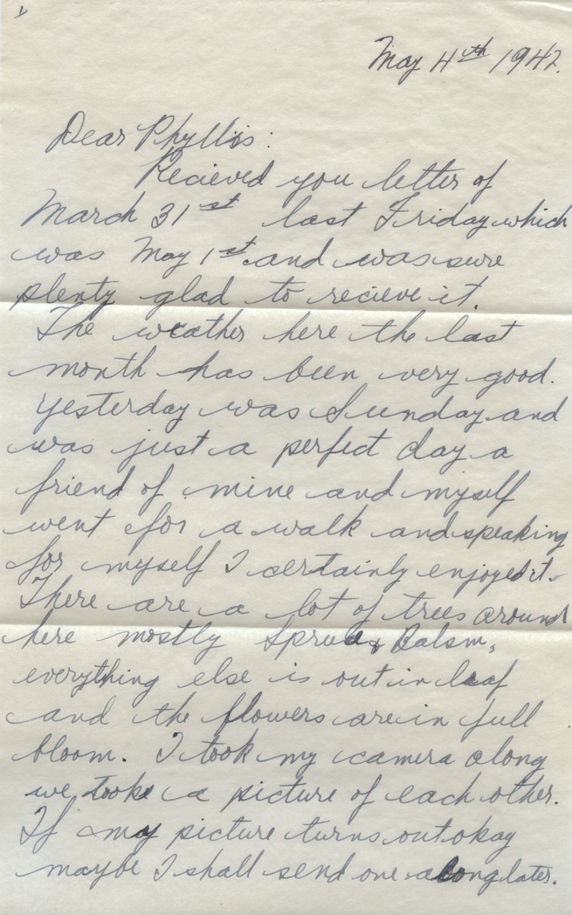 May 4th 1942.
Dear Phyllis:
Recieved you letter of
March 31st last Friday which
was May 1st. and was sure
plenty glad to recieve it.
The weather here the last
month has been very good.
Yesterday was Sunday and
was just a perfect day a
friend of mine and myself
went for a walk and speaking
for myself I certainly enjoyed it.
There are a lot of trees around
here mostly Spruce, Balsm,
everything else is out in leaf
and the flowers are in full
bloom. I took my camera along
we tooke a picture of each other.
If my picture turns out okay
maybe I shall send one along later.